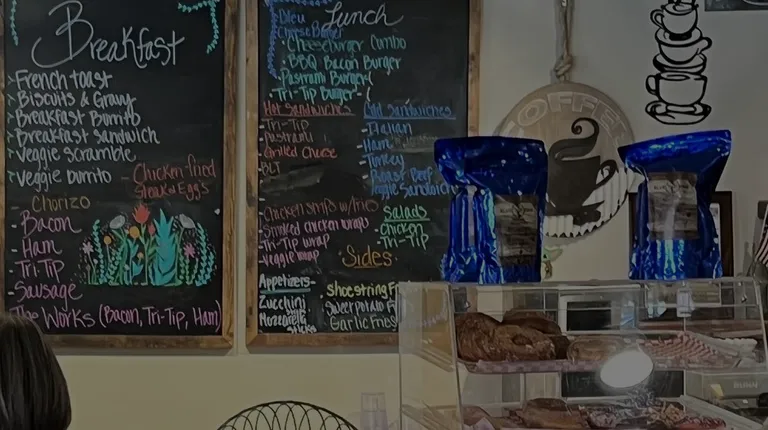 Breakfast
French toast
Biscuits & Gravy
Breakfast Burrito
Breakfast Sandwich
Veggie Scramble
Veggie Burrito
- Chicken fried
Steak & Eggs
- Chorizo
- Bacon
- Ham
- Tri Tip
- Sausage
- The Works (Bacon, Tri-Tip, Ham)
Lunch
Bleu
Cheese Burger
Cheeseburger Combo
BBQ Bacon Burger
Pastrami Burger
Tri-Tip Burger
Hot Sandwiches
- Tri-Tip
- Pastrami
- Grilled Cheese
BLT
Cold Sandwiches
- Italian
- Ham
- Turkey
- Roast Beef
Veggie Sandwich
- Chicken strips w/fries
- Smoked chicken wraps
- Tri-Tip wrap
- Veggie wrap
Salads
- Chicken
- Tri-Tip
Sides
Appetizers
Zucchini
Mozzarella
sticks
shoestring
Sweet potato
Garlic Fries
COFFEE